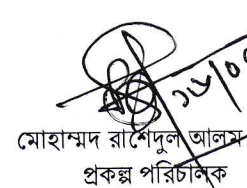 ১৬/০
মোহাম্মদ রাশেদুল আলম
প্রকল্প পরিচালক